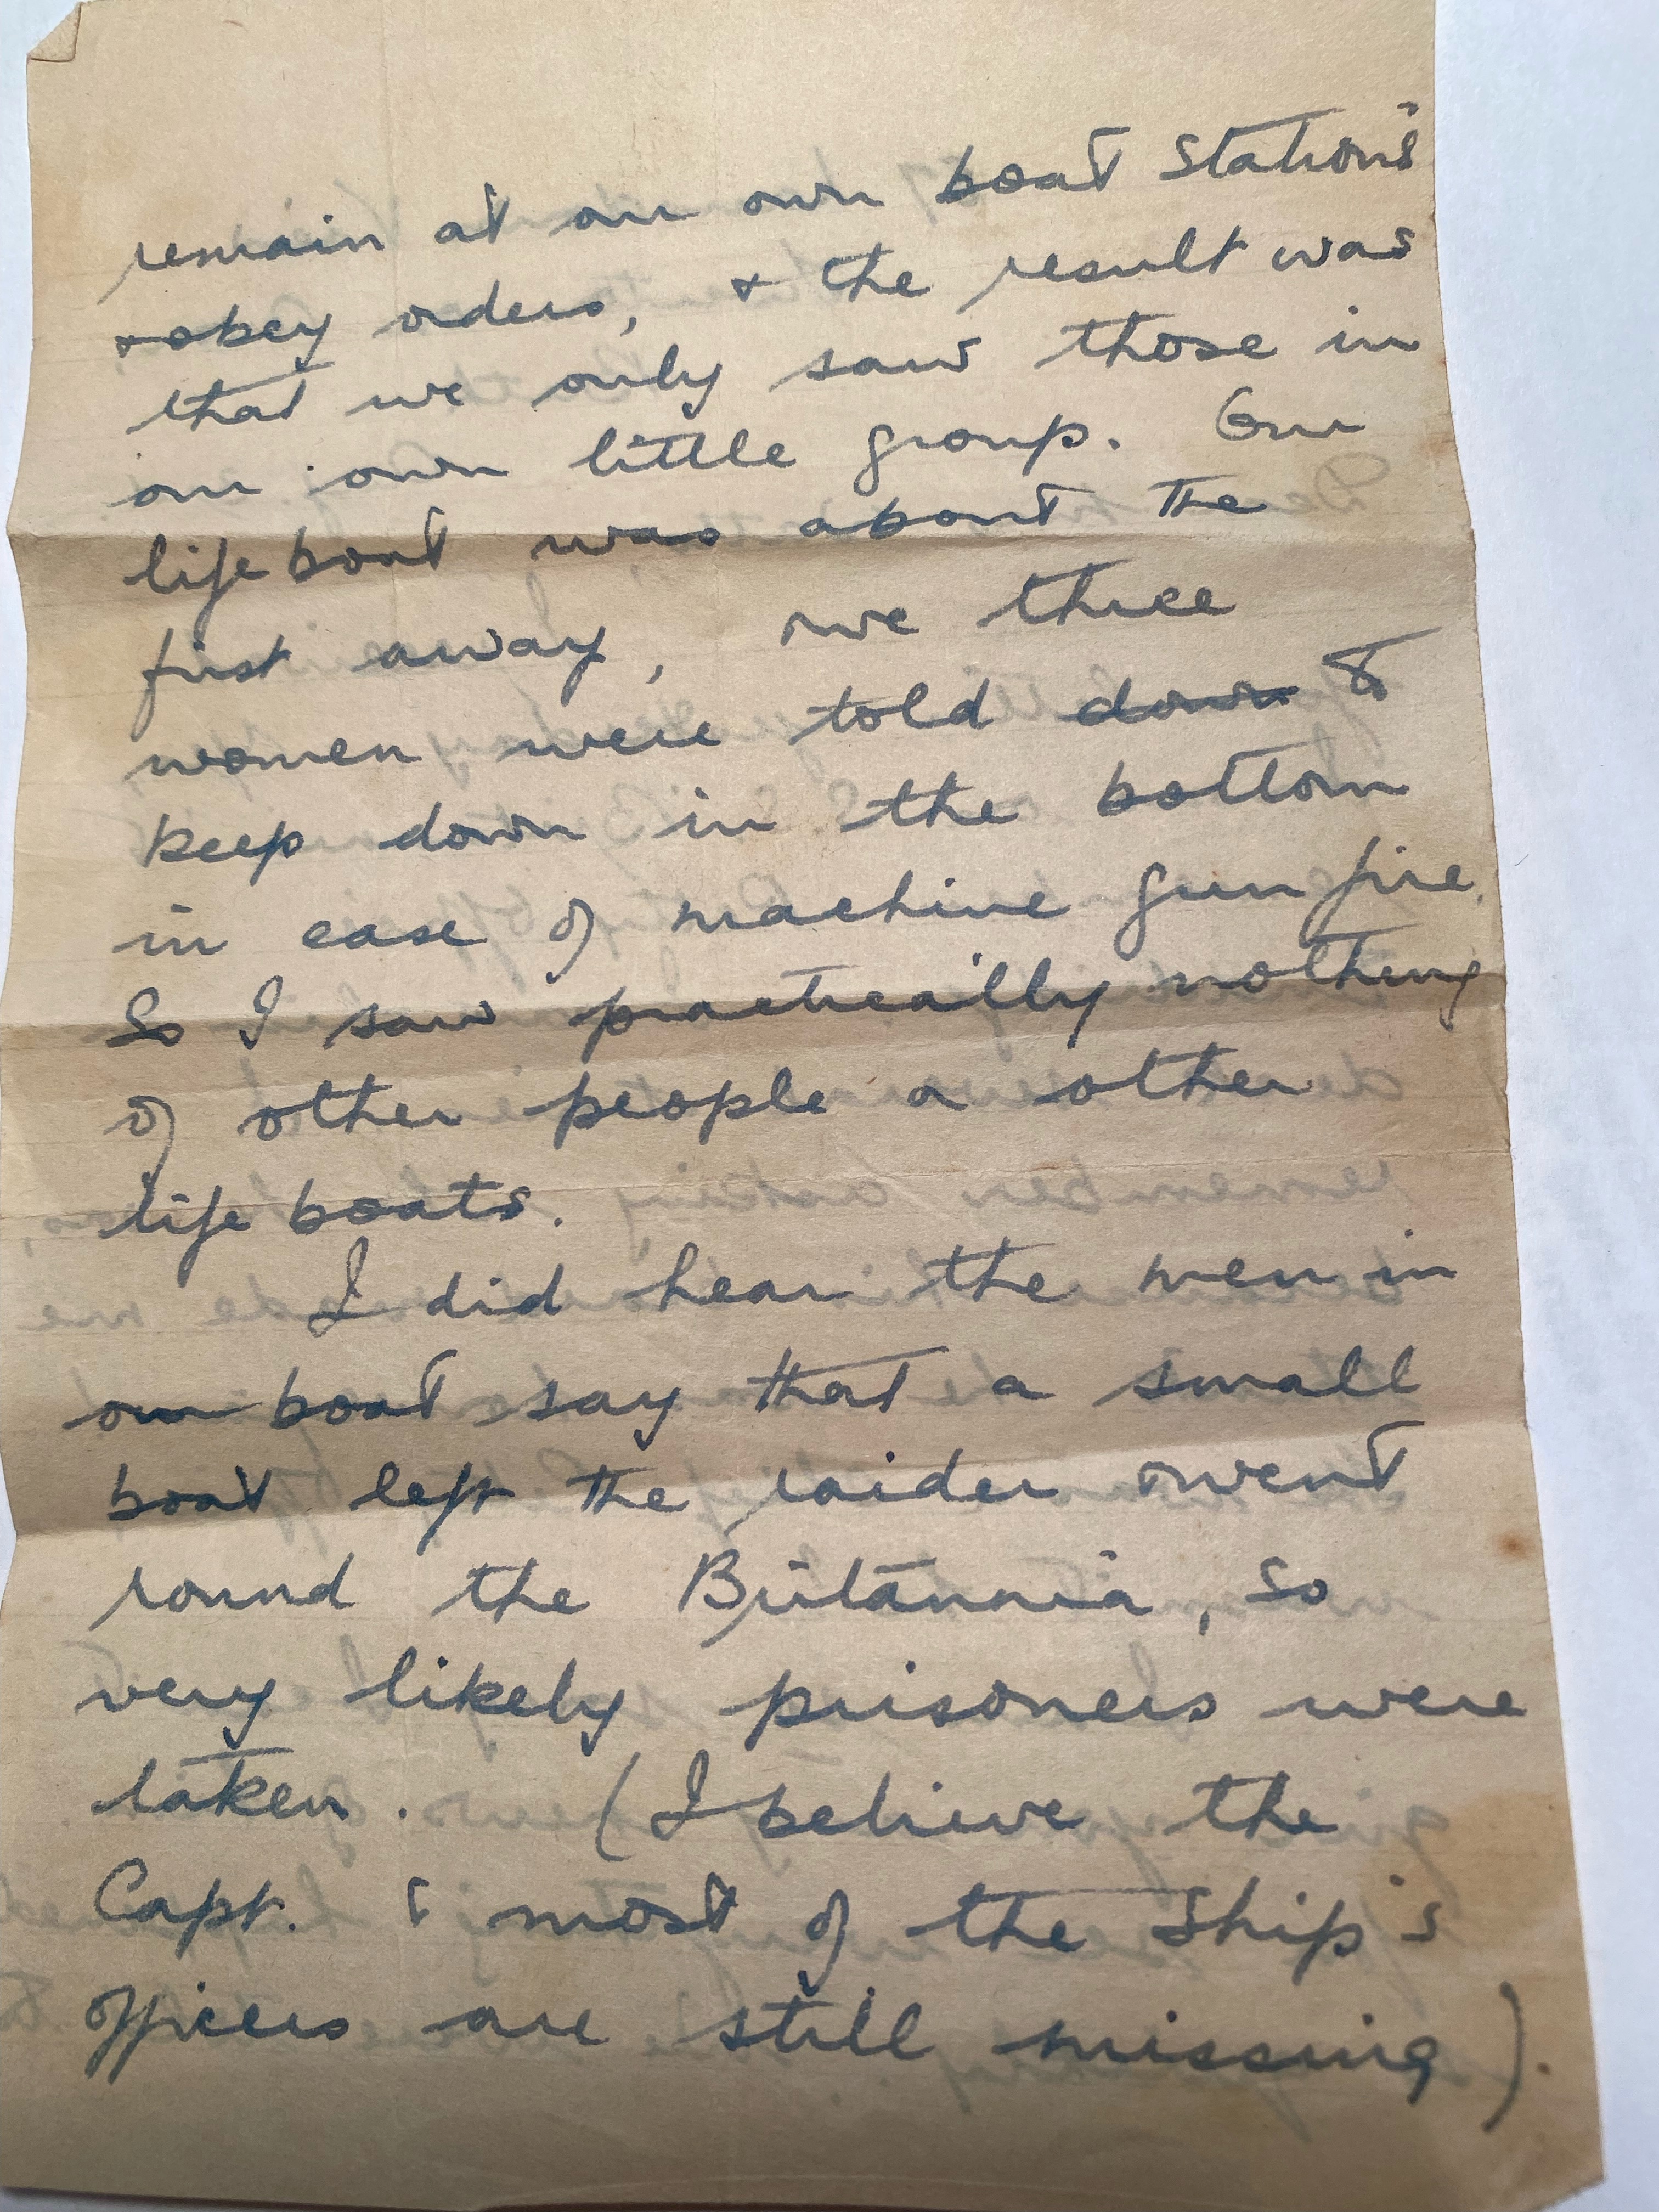 remain at our own boat stations
& obey orders, & the result was
that we only saw those in
our own little group. Our
lifeboat was about the
first away, & we three
women were told ~~down~~ to
keep down in the bottom
in case of machine gun fire.
So I saw practically nothing
of other people or other
life boats.
I did hear the men in
our boat say that a small
boat left the raider & went
round the Britannia, so
very likely prisoners were
taken. (I believe the
Capt. & most of the ship's
officers are still missing).